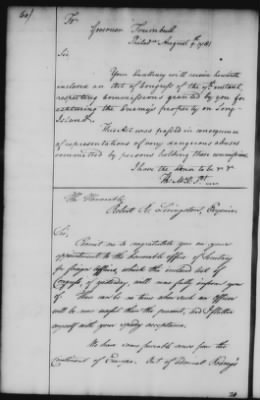 To
Governor Trumbull
Philada August 9th 1781
Sir
Your Excellency will receive herewith
enclosed an Act of Congress of the 7th instant,
respecting Commissions granted by you for
capturing the Enemy's property on Long-
Island.
This Act was passed in consequence
of representations of very dangerous abuses
committed by persons holding those commissions.
I have the honor to be &c &c
Tho. McK. Pt.
The Honorable
Robert R. Livingston, Esquire
Sir,
Permit me to congratulate you on your
appointment to the honorable office of Secretary
for foreign Affairs, which the inclosed Act of
Congress, of yesterday, will more fully inform you
of. There can be no time when such an officer
will be more useful than the present, and I flatter
myself with your speedy acceptance.
We have some favorable news from the
Continent of Europe. Part of Admiral Rodney's